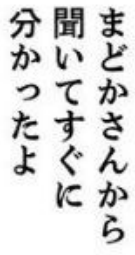 まどかさんから
聞いてすぐに
分かったよ